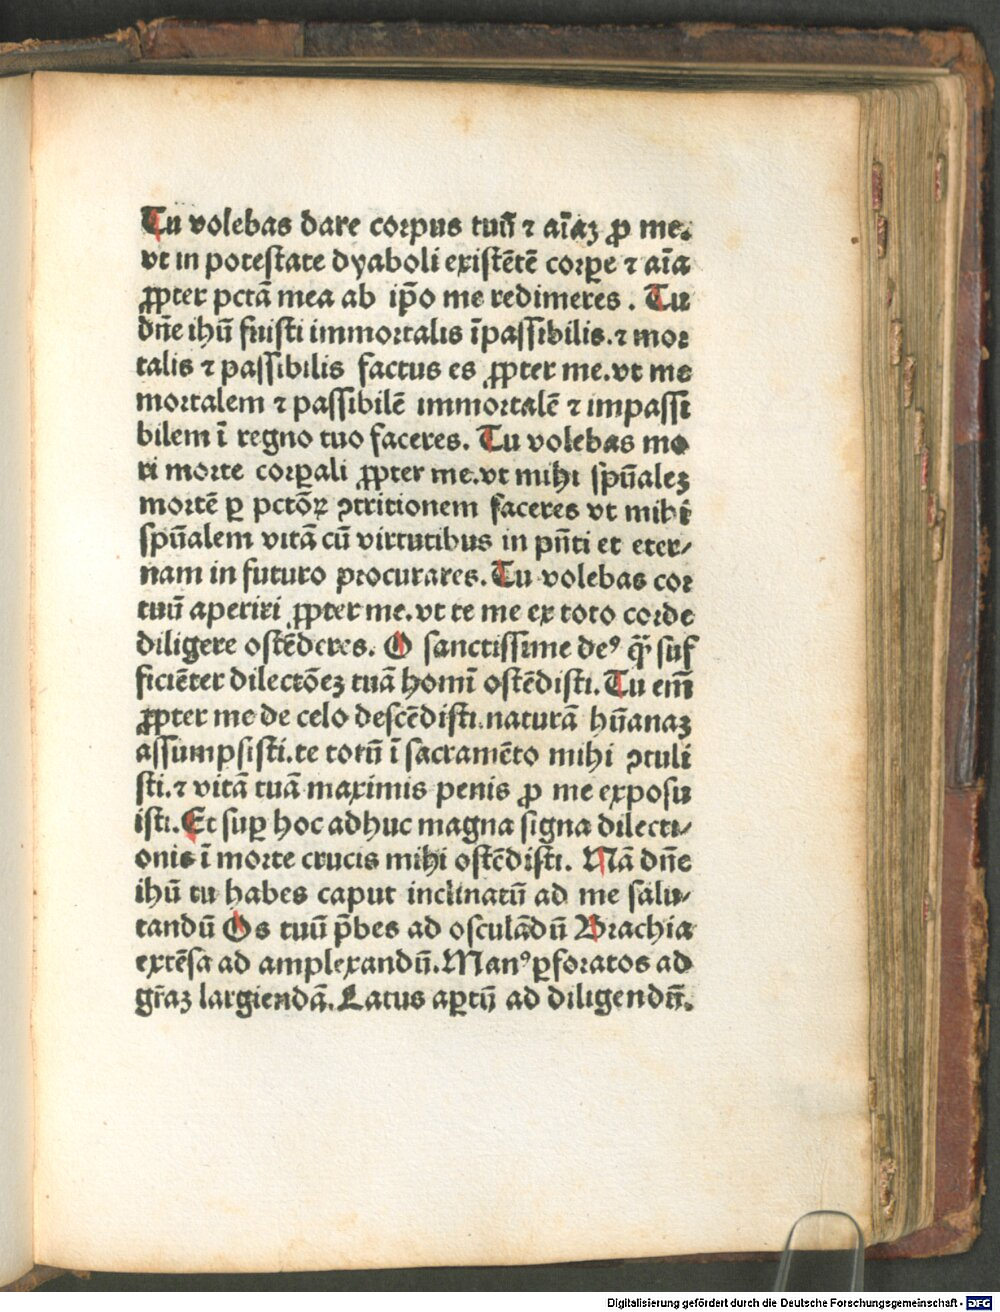 Tu volebas dare corpus tuũ ⁊ aĩaꝫ ꝓ me.
vt in potestate dyaboli existẽtẽ corꝑe ⁊ aĩa
ꝓpter pctã mea ab ip̃o me redimeres . Tu
dñe ihũ fuisti immortalis ĩpassibilis.⁊ mor
talis ⁊ passibilis factus es ꝓpter me.vt me
mortalem ⁊ passibilẽ immortalẽ ⁊ impassi
bilem ĩ regno tuo faceres. Tu volebas mo
ri morte corꝑali ꝓpter me.vt mihi spũaleꝫ
mortẽ ꝑ pctõꝝ ꝯtritionem faceres vt mihi
spũalem vitã cũ virtutibus in pñti et eter⸗
nam in futuro procurares. Tu volebas cor
tuũ aperiri ꝓpter me.vt te me ex toto corde
diligere ostẽderes. O sanctissime deꝰ q̃ suf
ficiẽter dilectõeꝫ tuã homĩ ostẽdisti. Tu em̃
ꝓpter me de celo descẽdisti.naturã hũanaꝫ
assumpsisti.te totũ ĩ sacramẽto mihi ꝯtuli
sti.⁊ vitã tuã maximis penis ꝓ me exposu
isti. Et suꝑ hoc adhuc magna signa dilecti⸗
onis ĩ morte crucis mihi ostẽdisti. Nã dñe
ihũ tu habes caput inclinatũ ad me salu⸗
tandũ Os tuũ p̃bes ad osculãdũ Brachia
extẽsa ad amplexandũ.Manꝰ ꝑforatos ad
gr̃aꝫ largiendã. Latus aꝑtũ ad diligendũ.
Digitalisierung gefördert durch die Deutsche Forschungsgemeinschaft - DFG